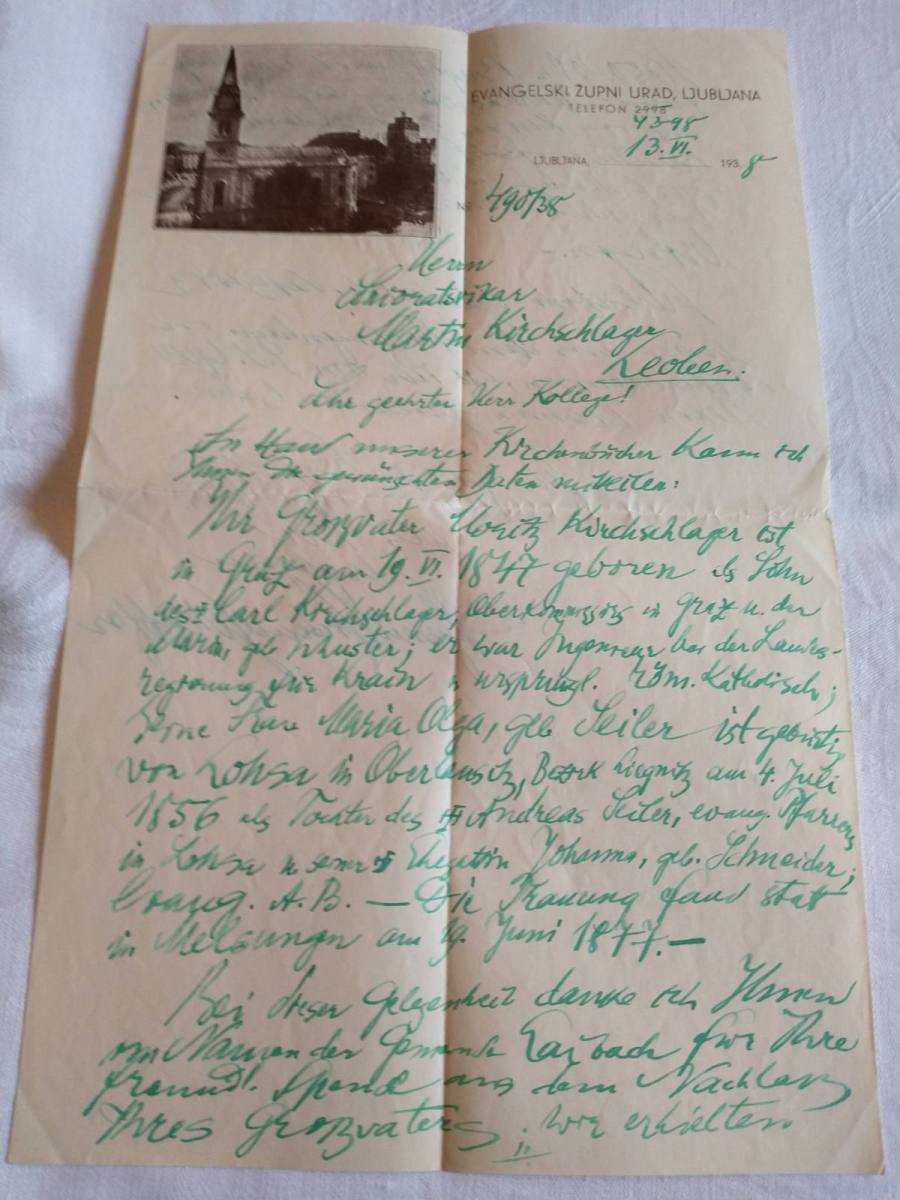 EVANGELSKI ŽUPNI URAD, LJUBLJANA
TELEFON 2998
4398
LJUBLJANA, 13. VI. 1938
No 490/38
Herrn
Senioratsvikar
Martin Kirchschlager
Leoben.
Sehr geehrter Herr Kollege!
An Hand unserer Kirchenbücher kann ich
Ihnen die gewünschten Daten mitteilen:
Ihr Großvater Moritz Kirchschlager ist
in Graz am 19. VI. 1847 geboren als Sohn
des † Carl Kirchschlager, Oberkommissärs in Graz u. der
Maria, geb. Schuster; er war Ingenieur bei der Landes-
regierung für Krain u. ursprüngl. röm. Katholisch;
Seine Frau Maria Olga, geb. Seiler ist gebürtig
von Lohsa in Oberlausitz, Bezirk Liegnitz am 4. Juli
1856 als Tochter des † Andreas Seiler, evang. Pfarrers
in Lohsa u. seiner † Ehegattin Johanna, geb. Schneider;
Evang. A. B. — Die Trauung fand statt
in Melsungen am 19. Juni 1877. —
Bei dieser Gelegenheit danke ich Ihnen
im Namen der Gemeinde Laibach für Ihre
freundl. Spende aus dem Nachlass
Ihres Großvaters. Wir erhielten